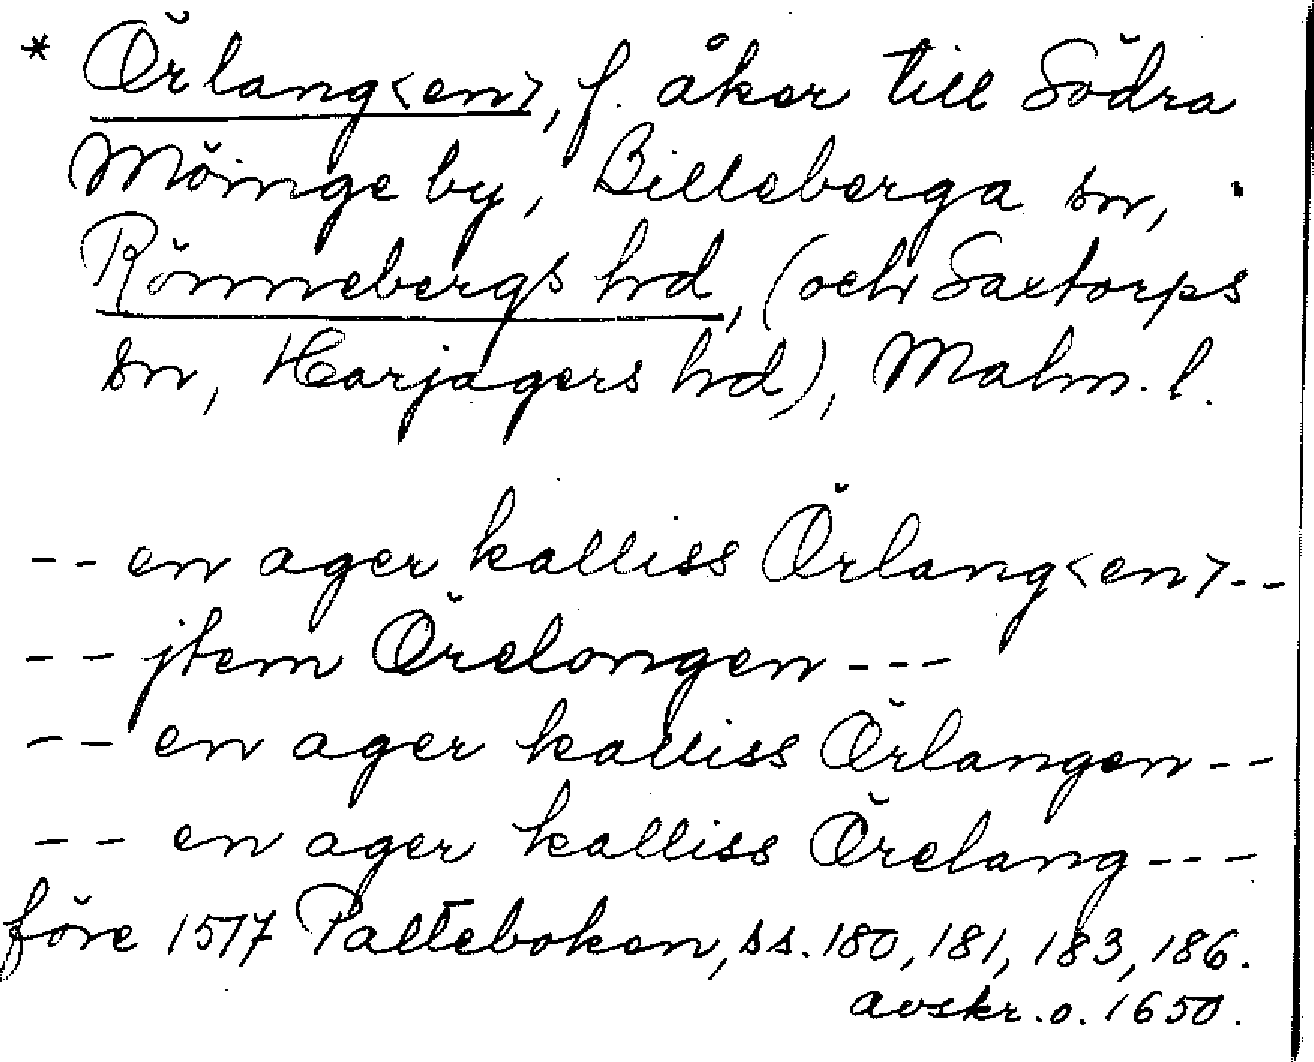 * Örlang<en>, f. åker till Södra
Möinge by, Billeberga sn,
Rönnebergs hd, (och Saxtorps
sn, Harjagers hd), Malm. l.
-- en ager kalliss Örlang<en>--
-- jtem Örelongen ---
-- en ager kalliss Örlangen --
-- en ager kalliss Örelang ---
före 1517 Palteboken, ss. 180, 181, 183, 186.
avskr. o. 1650.